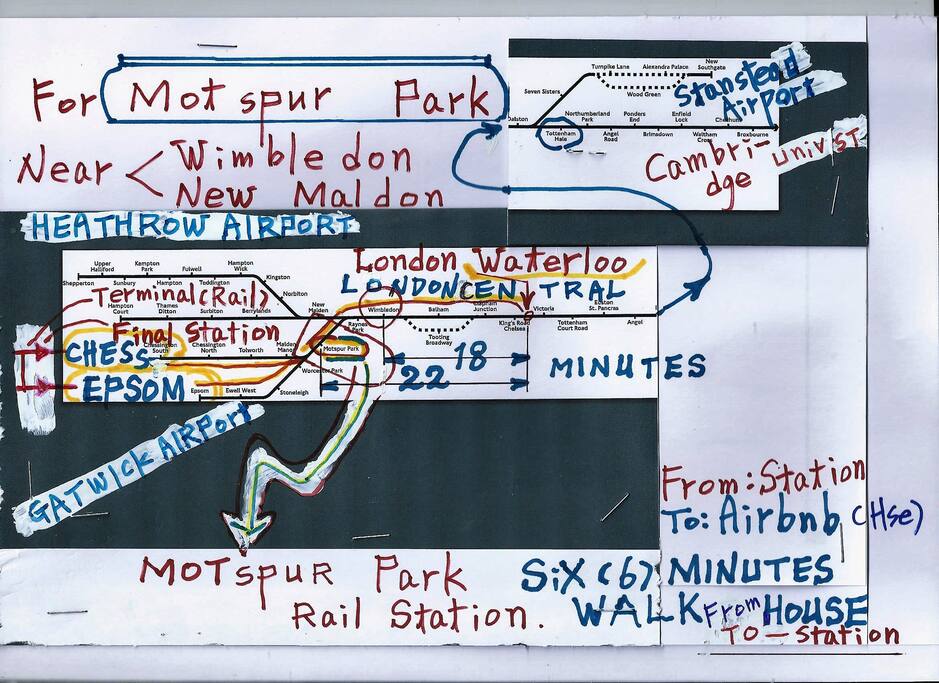 For Mot spur Park
Near < Wimbledon
New Maldon
HEATHROW AIRPORT
Turnpike Lane
Alexandra Palace
New Southgate
Wood Green
Seven Sisters
Stanstead
Airport
Dalston
Northumberland Park
Ponders End
Enfield Lock
Tottenham Hale
Angel Road
Brimsdown
Waltham Cross
Broxbourne
Cambri-
dge
univ ST
London Waterloo
LONDON CENTRAL
Upper Halliford
Kempton Park
Fulwell
Hampton Wick
Shepperton
Sunbury
Hampton
Teddington
Kingston
Terminal (Rail)
Norbiton
Hampton Court
Thames Ditton
Surbiton
Berrylands
New Malden
Raynes Park
Wimbledon
Balham
Clapham Junction
Victoria
Euston St. Pancras
Tooting Broadway
King's Road Chelsea
Tottenham Court Road
Angel
Final Station
CHESS
Chessington South
Chessington North
Tolworth
Malden Manor
Motspur Park
Worcester Park
EPSOM
Epsom
Ewell West
Stoneleigh
18
22
MINUTES
GATWICK AIRPORT
From: Station
To: Airbnb (Hse)
MOTspur Park
Rail Station.
SiX (6) MINUTES
WALK From HOUSE
TO - station